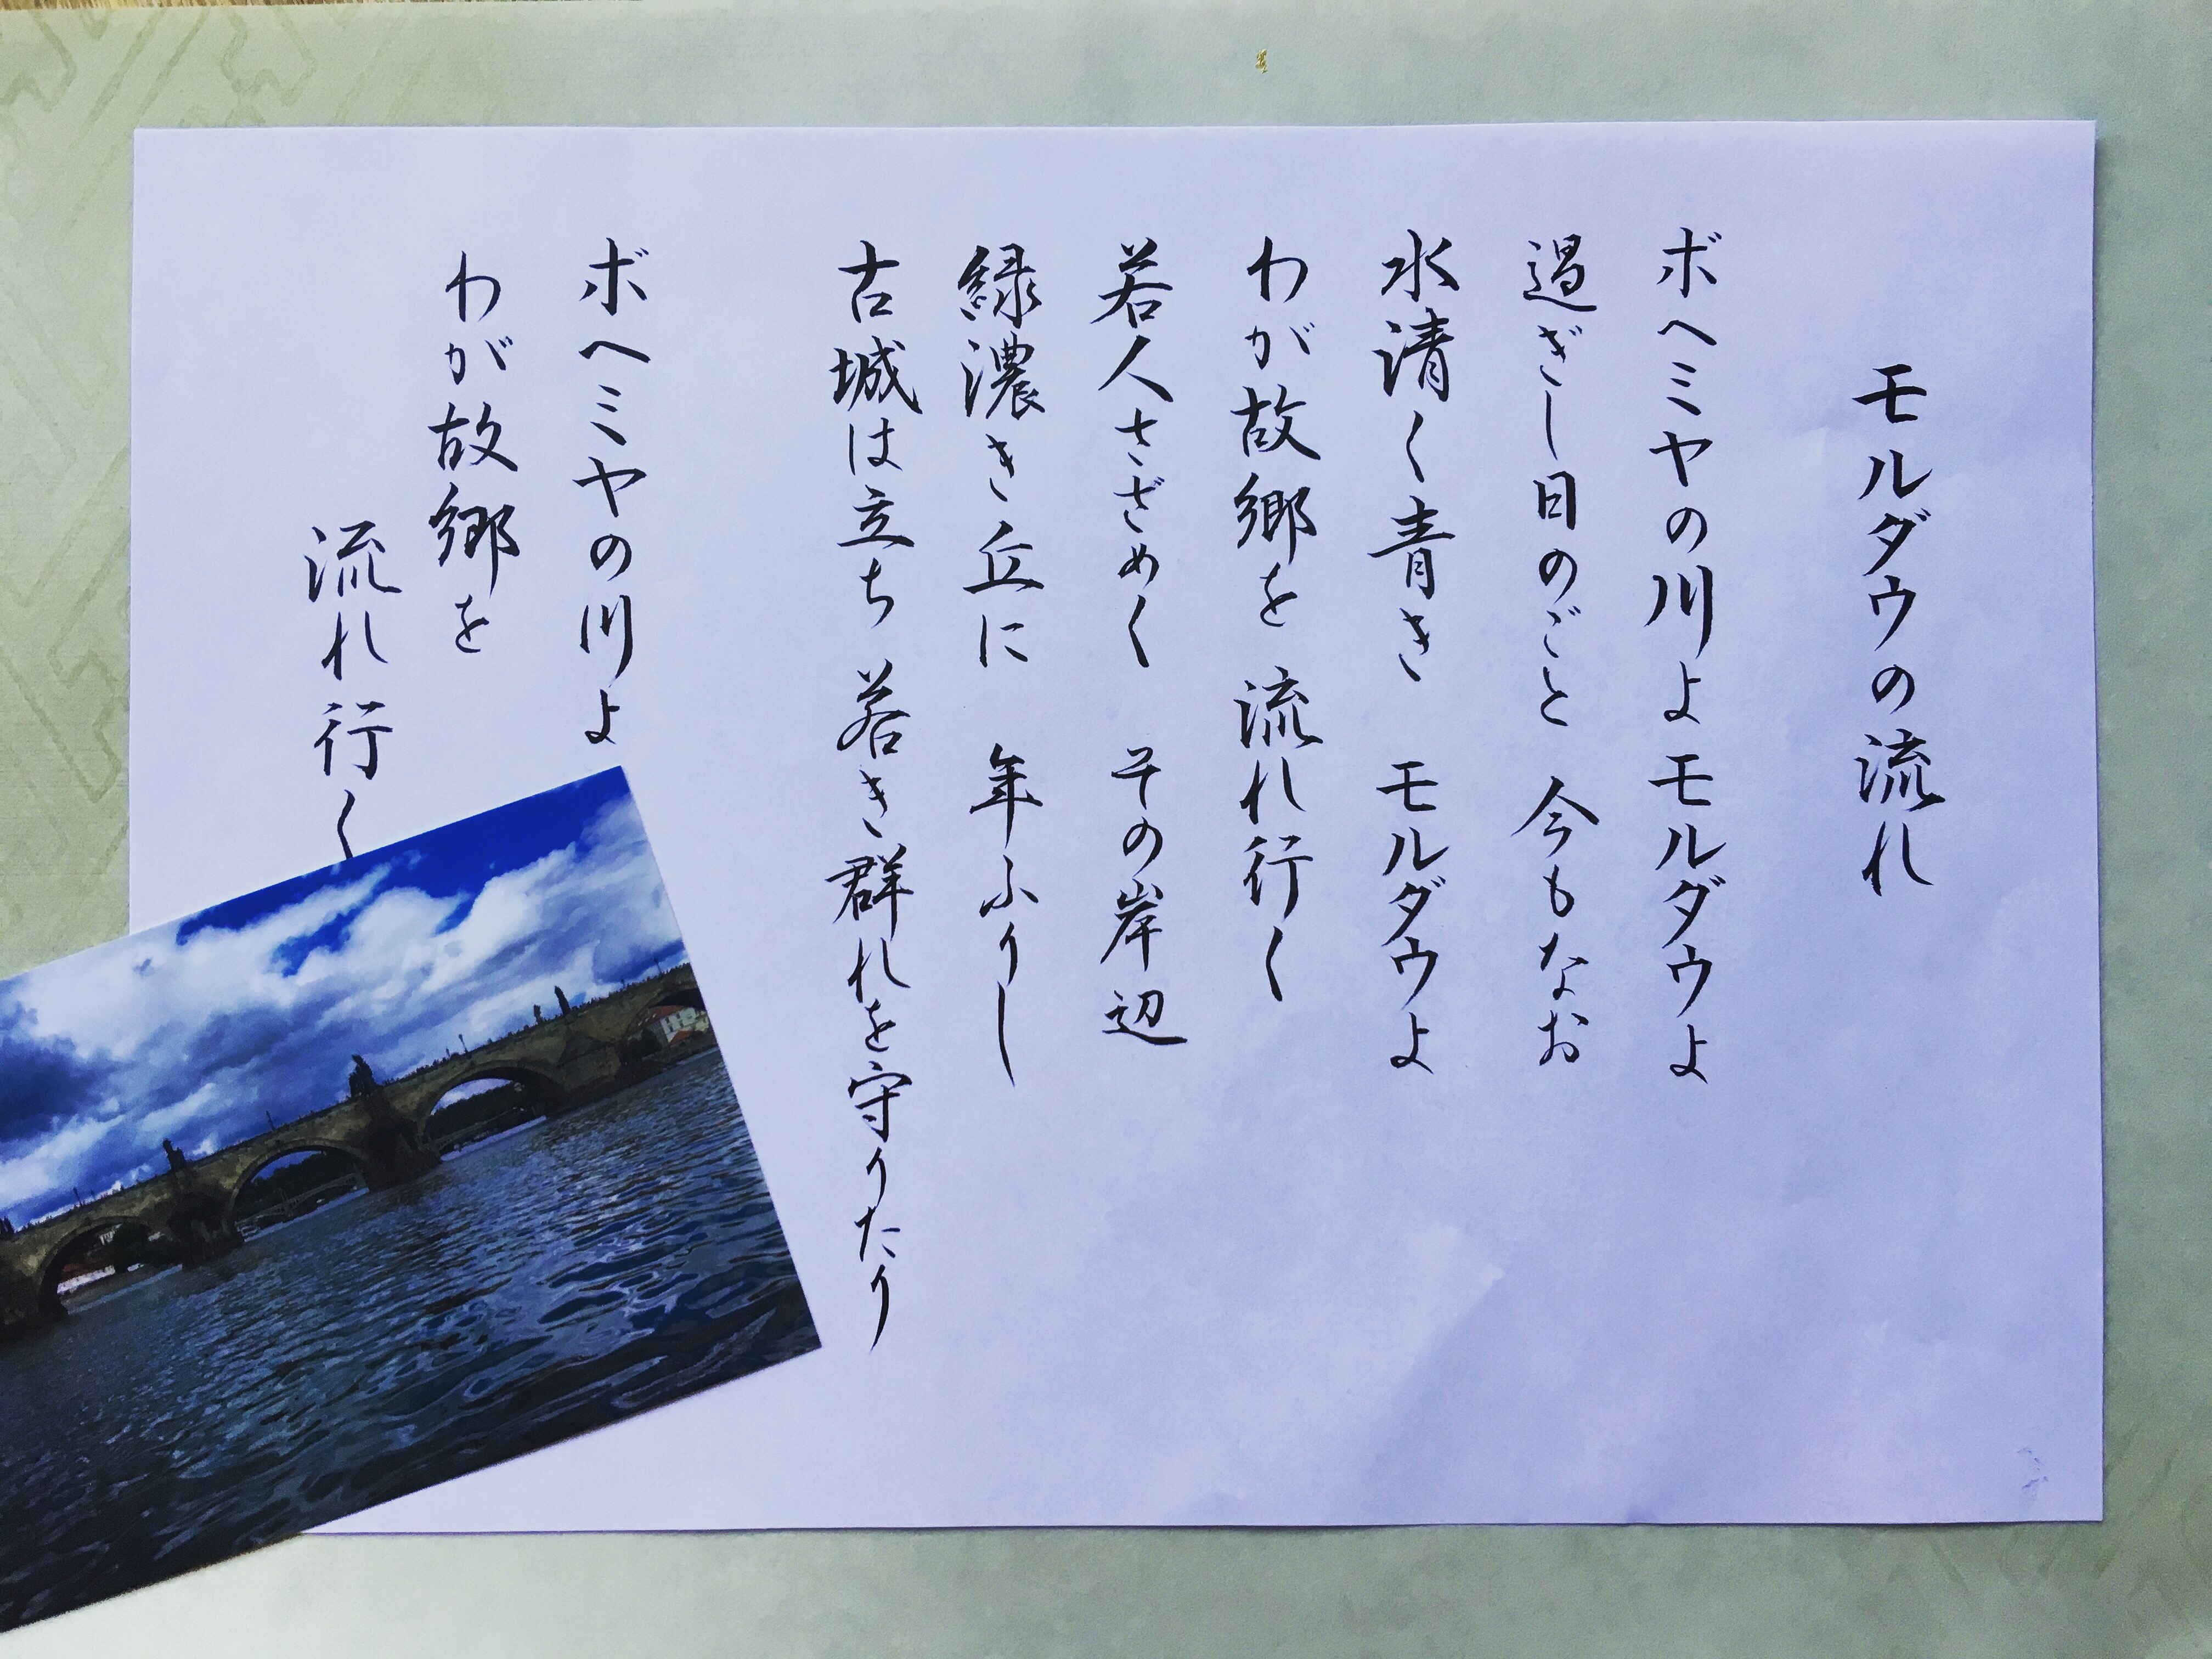 モルダウの流れ
ボヘミヤの川よモルダウよ
過ぎし日のごと 今もなお
水清く青き モルダウよ
わが故郷を 流れ行く
若人さざめく その岸辺
緑濃き丘に 年ふりし
古城は立ち 若き群れを守りたり
ボヘミヤの川よ
わが故郷を
流れ行く